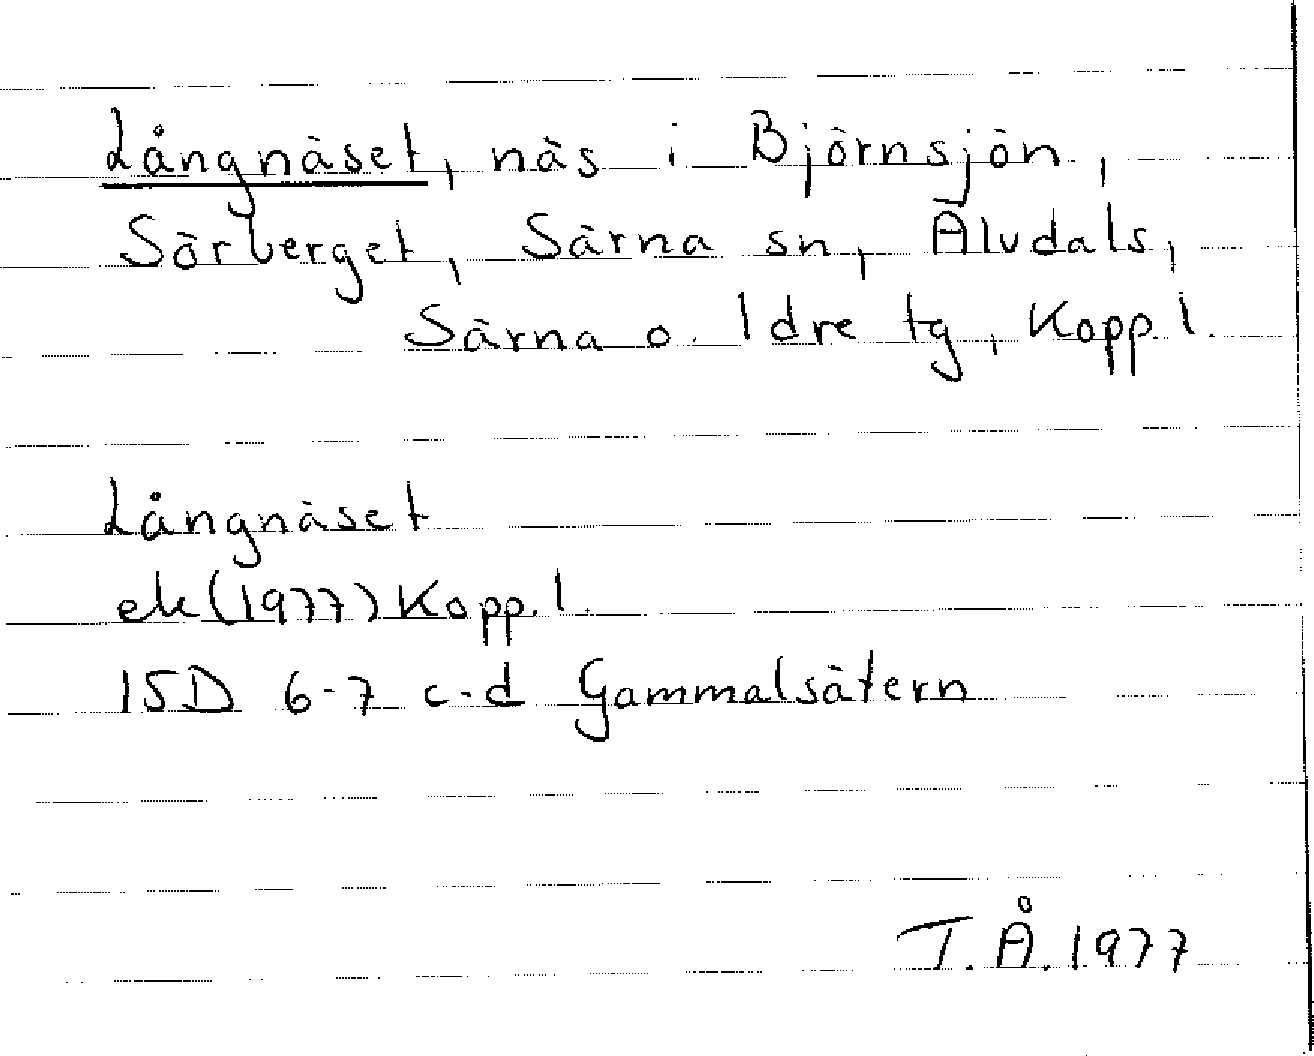 Långnäset, näs i Björnsjön,
Sörberget, Särna sn, Älvdals,
Särna o. Idre tg, Kopp. l.
Långnäset
ek (1977) Kopp. l.
15D 6-7 c-d Gammalsätern
T. Å. 1977